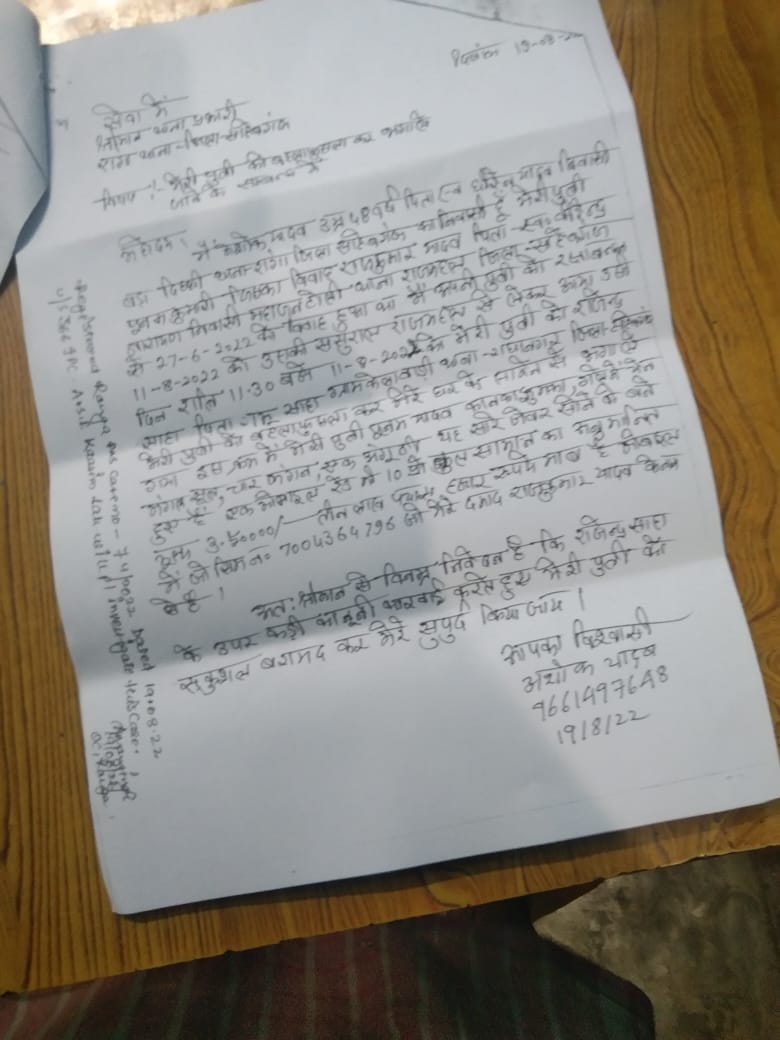 दिनांक 19-08-
सेवा में
श्रीमान थाना प्रभारी
रांगा थाना-जिला-साहेबगंज
विषय :- मेरी पुत्री को बहलाफुसला कर भगालिये
जाने के सम्बन्ध में
महोदय,
मैं अशोक यादव उम्र 48 वर्ष पिता स्व० यादव निवासी
बड़ा दिग्घी थाना-रांगा जिला साहेबगंज का निवासी हूँ मेरी पुत्री
पूनम कुमारी जिसका विवाह राजकुमार यादव पिता-स्व०
नारायण निवासी महाजनटोली थाना राजमहल जिला-साहेबगंज
से 27-6-2022 को विवाह हुआ था मैं अपनी पुत्री को रक्षाबन्धन
11-8-2022 को उसकी ससुराल राजमहल से लेकर आया उसी
दिन रात्रि 11.30 बजे 11-8-2022 को मेरी पुत्री को राजेन्द्र
साहा पिता- साहा ग्राम थाना-राधानगर जिला साहेबगंज
मेरी पुत्री को बहलाफुसला कर मेरे घर के सामने से भगाले
गया इस क्रम में मेरी पुत्री पूनम यादव कानका झुमका, गले में चैन
मंगल सूत्र, चार कंगन, एक अंगूठी यह सारे जेवर सोने के बने
हुए है, एक मोबाइल रेड मी 10 की कुल सामान का अनुमानित
मूल्य 3,50000/- तीन लाख हजार रूपये मात्र है
में जो सिम नं० 7004364796 जो मेरे दमाद राजकुमार यादव के नाम
से है।
अतः श्रीमान से विनम्र निवेदन है कि राजेन्द्र साहा
के उपर कड़ी कानूनी कारवाई करते हुए मेरी पुत्री को
सकुशल बरामद कर मेरे सुपुर्द किया जाय।
आपका विश्वासी
अशोक यादव
9661497648
19/8/22
Registered Ranga PS Case no- 74/2022 Dated 19.08.22
u/s 366 IPC. A.S.I. will investigate this case.
OC, Ranga